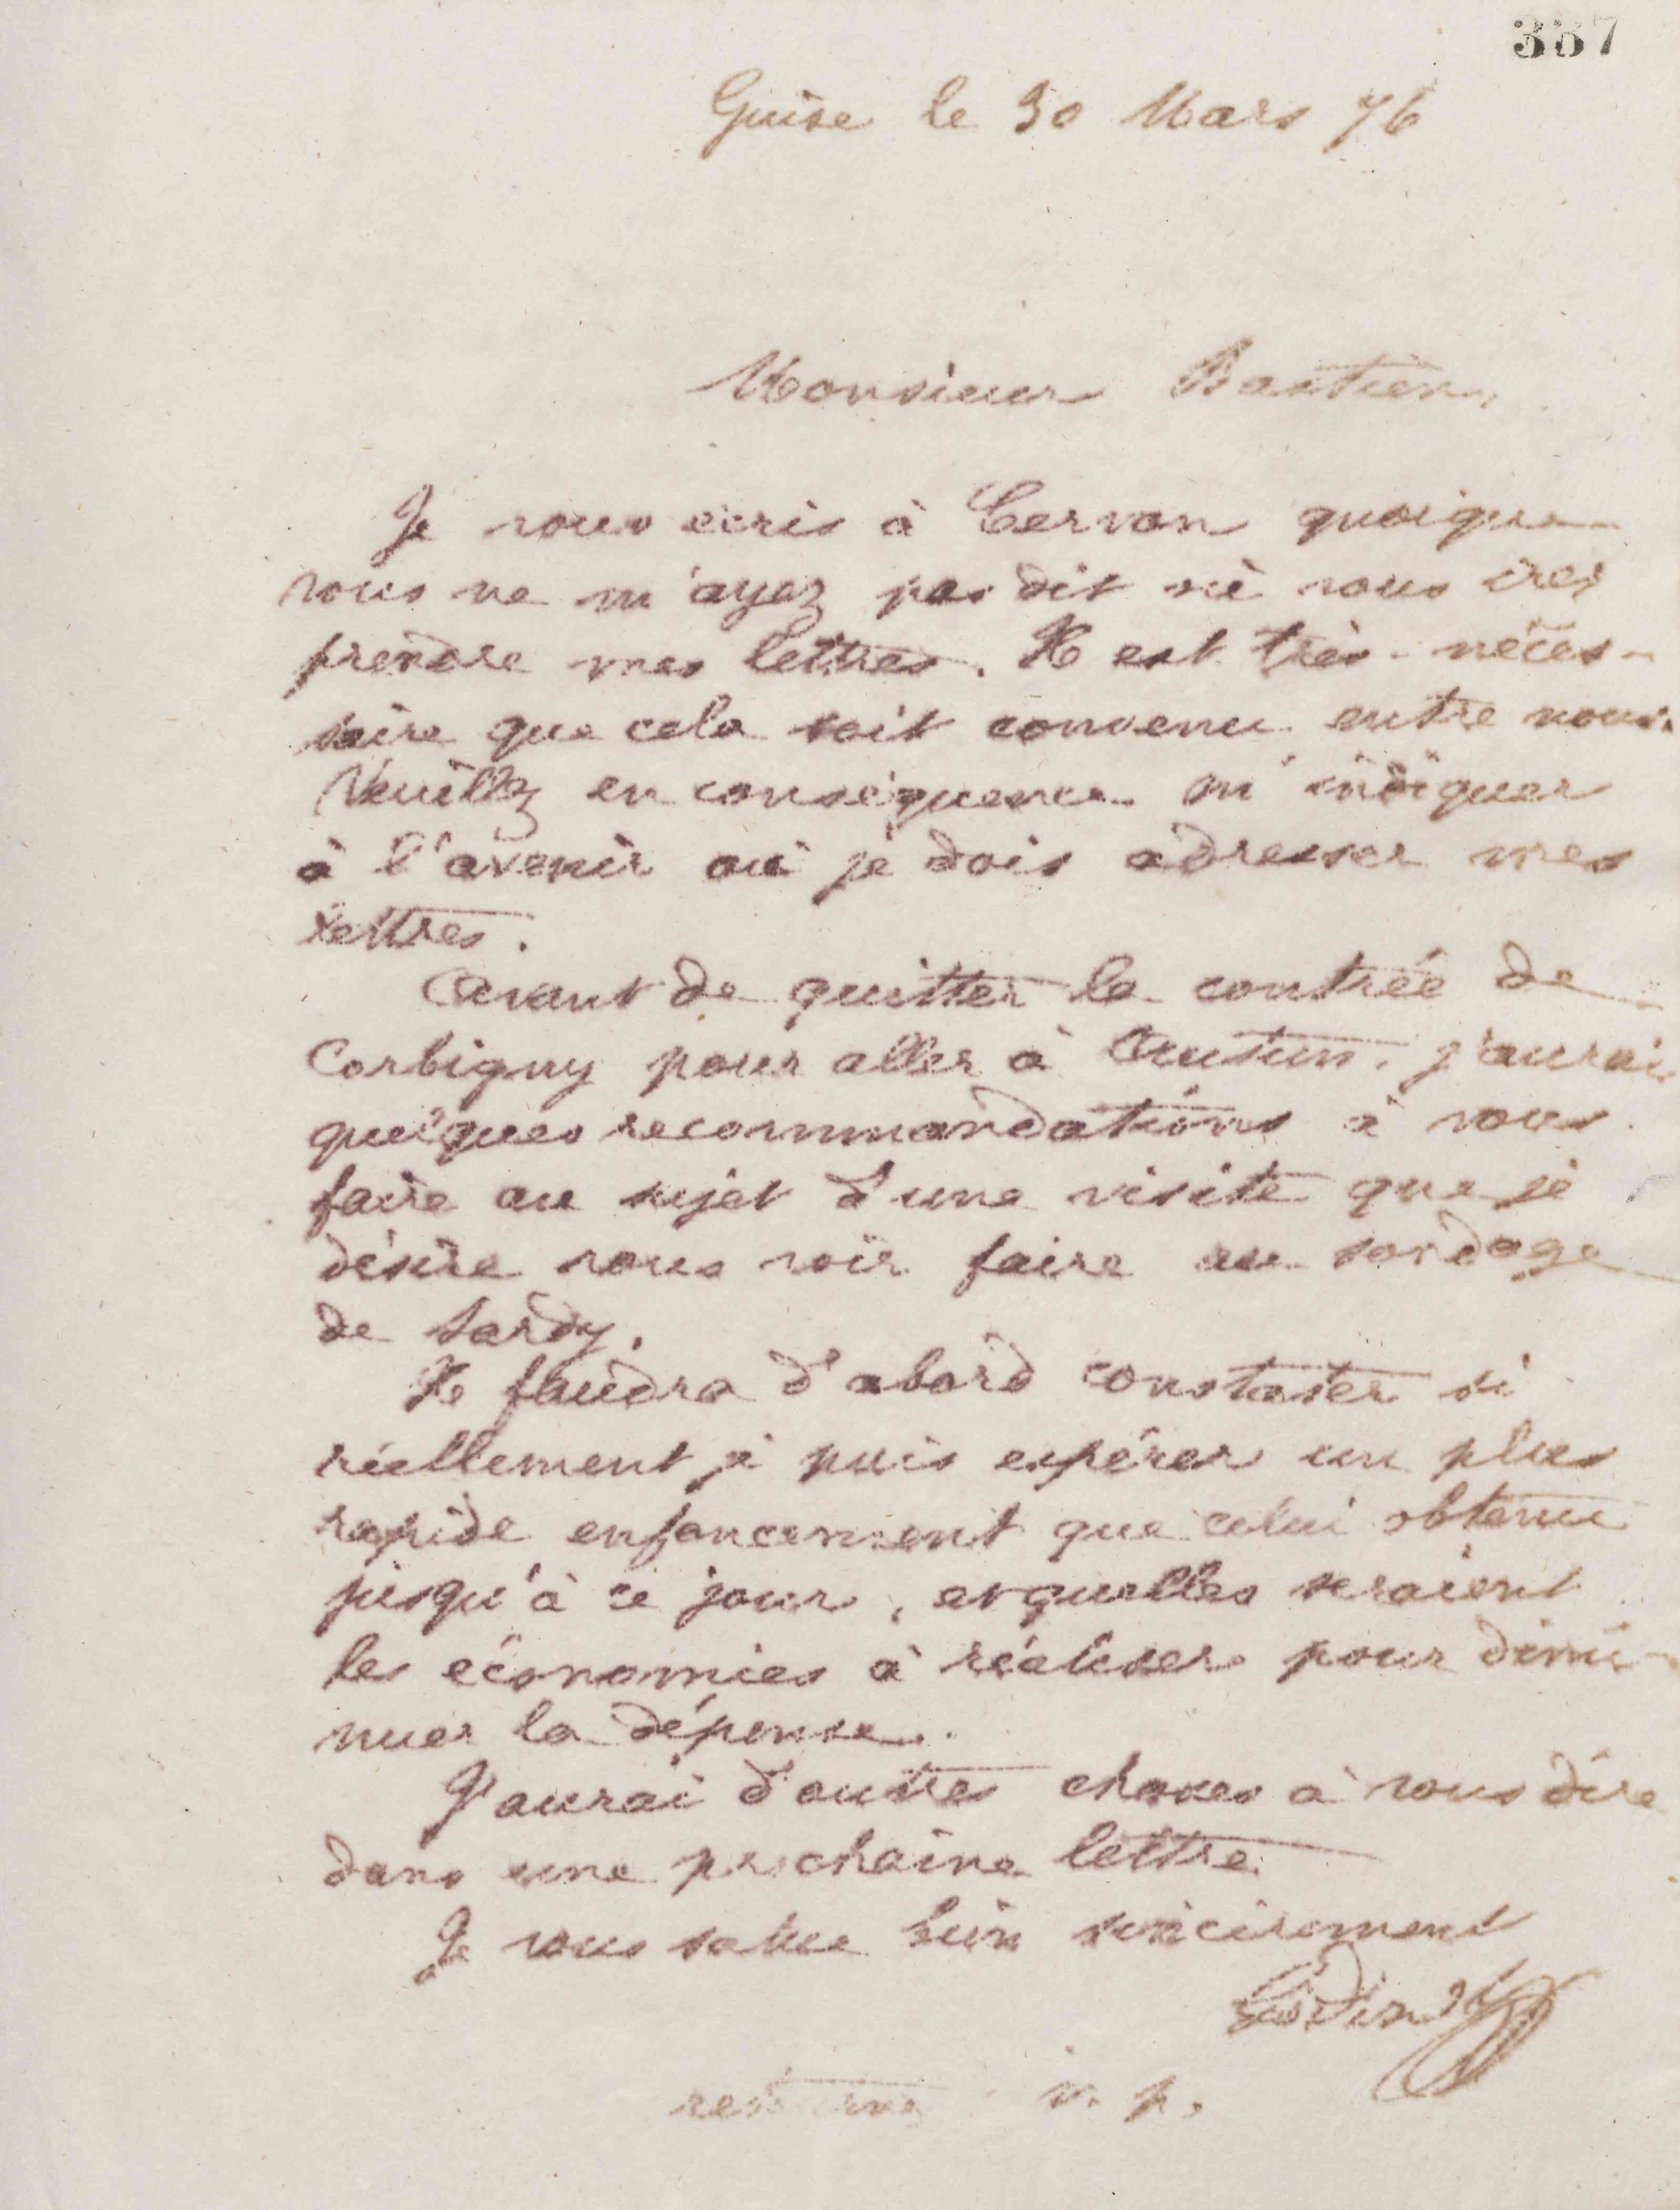 357
Guise le 30 Mars 76
Monsieur Bastien,
Je vous écris à Cervon quoique
vous ne m'ayez pas dit où vous irez
prendre mes lettres. Il est très-néces-
saire que cela soit convenu entre nous.
Veuillez en conséquence m'indiquer
à l'avenir où je dois adresser mes
lettres.
Avant de quitter la contrée de
Corbigny pour aller à Autun, j'aurai
quelques recommandations à vous
faire au sujet d'une visite que je
désire vous voir faire au sondage
de Sardy.
Il faudra d'abord constater si
réellement je puis espérer un plus
rapide enfoncement que celui obtenu
jusqu'à ce jour, et quelles seraient
les économies à réaliser pour dimi-
nuer la dépense.
J'aurai d'autres choses à vous dire
dans une prochaine lettre.
Je vous salue bien sincèrement
Godin
v. p.